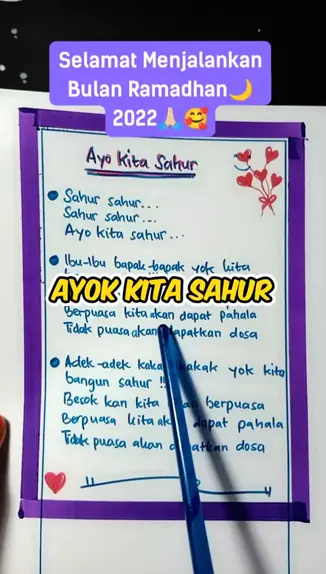 Selamat Menjalankan
Bulan Ramadhan🌙
2022🙏🏻🥰
Ayo Kita Sahur
Sahur sahur...
Sahur sahur...
Ayo kita sahur...
Ibu-Ibu bapak-bapak yok kita
AYOK KITA SAHUR
Berpuasa kita akan dapat pahala
Tidak puasa akan dapatkan dosa
Adek-adek kakak yok kita
bangun sahur !!
Besok kan kita berpuasa
Berpuasa kita dapat pahala
Tidak puasa akan dosa